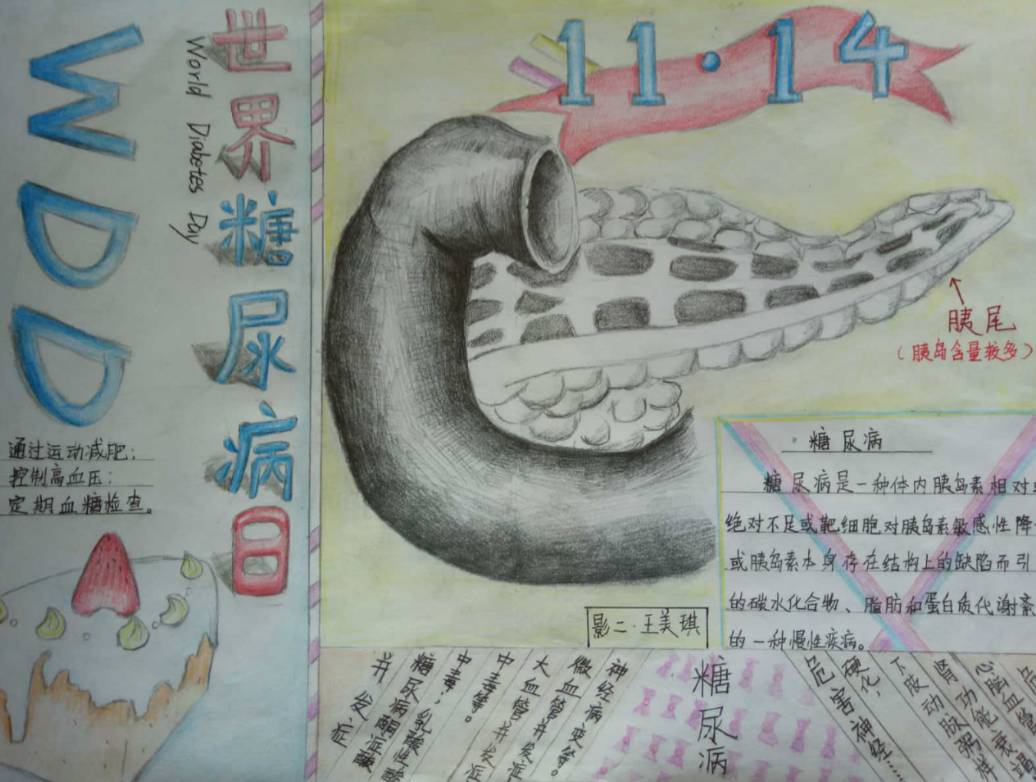 WDD
世界糖尿病日
World Diabetes Day
11·14
胰尾
（胰岛含量较多）
通过运动减肥；
控制高血压；
定期血糖检查。
糖尿病
糖尿病是一种体内胰岛素相对或
绝对不足或靶细胞对胰岛素敏感性降
或胰岛素本身存在结构上的缺陷而引
的碳水化合物、脂肪和蛋白质代谢紊
的一种慢性疾病。
影二·王美琪
并发症
糖尿病酮症酸
中毒，乳酸性酸
中毒等。
大血管并发症
微血管并发症
神经病变等。
糖尿病
危害神经
硬化，
下肢动脉粥样
肾功能衰竭
心脑血管